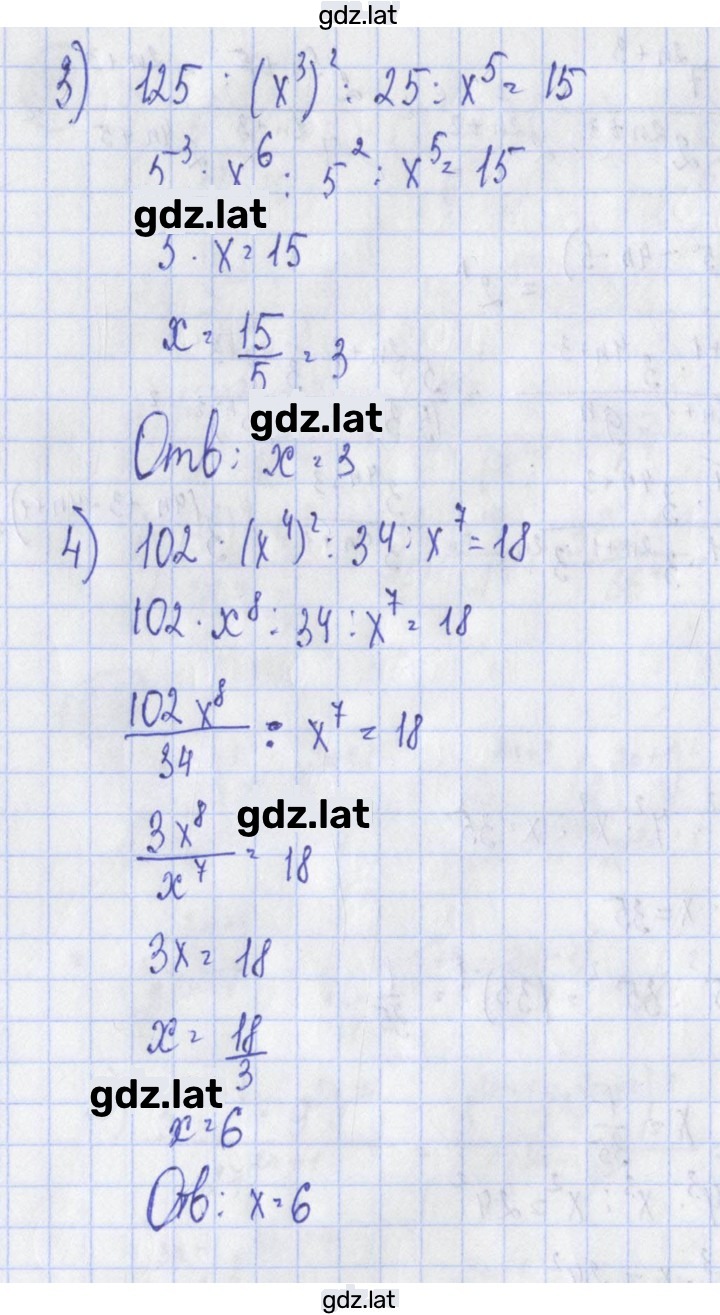 gdz.lat
3) 125 : (x³)² : 25 : x⁵ = 15
5³ · x⁶ : 5² : x⁵ = 15
gdz.lat
5 · x = 15
x = 15/5 = 3
gdz.lat
Отв: x = 3
4) 102 : (x⁴)² : 34 : x⁷ = 18
102 · x⁸ : 34 : x⁷ = 18
102 x⁸/34 : x⁷ = 18
gdz.lat
3x⁸/x⁷ = 18
3x = 18
x = 18/3
gdz.lat
x = 6
Отв: x = 6
gdz.lat